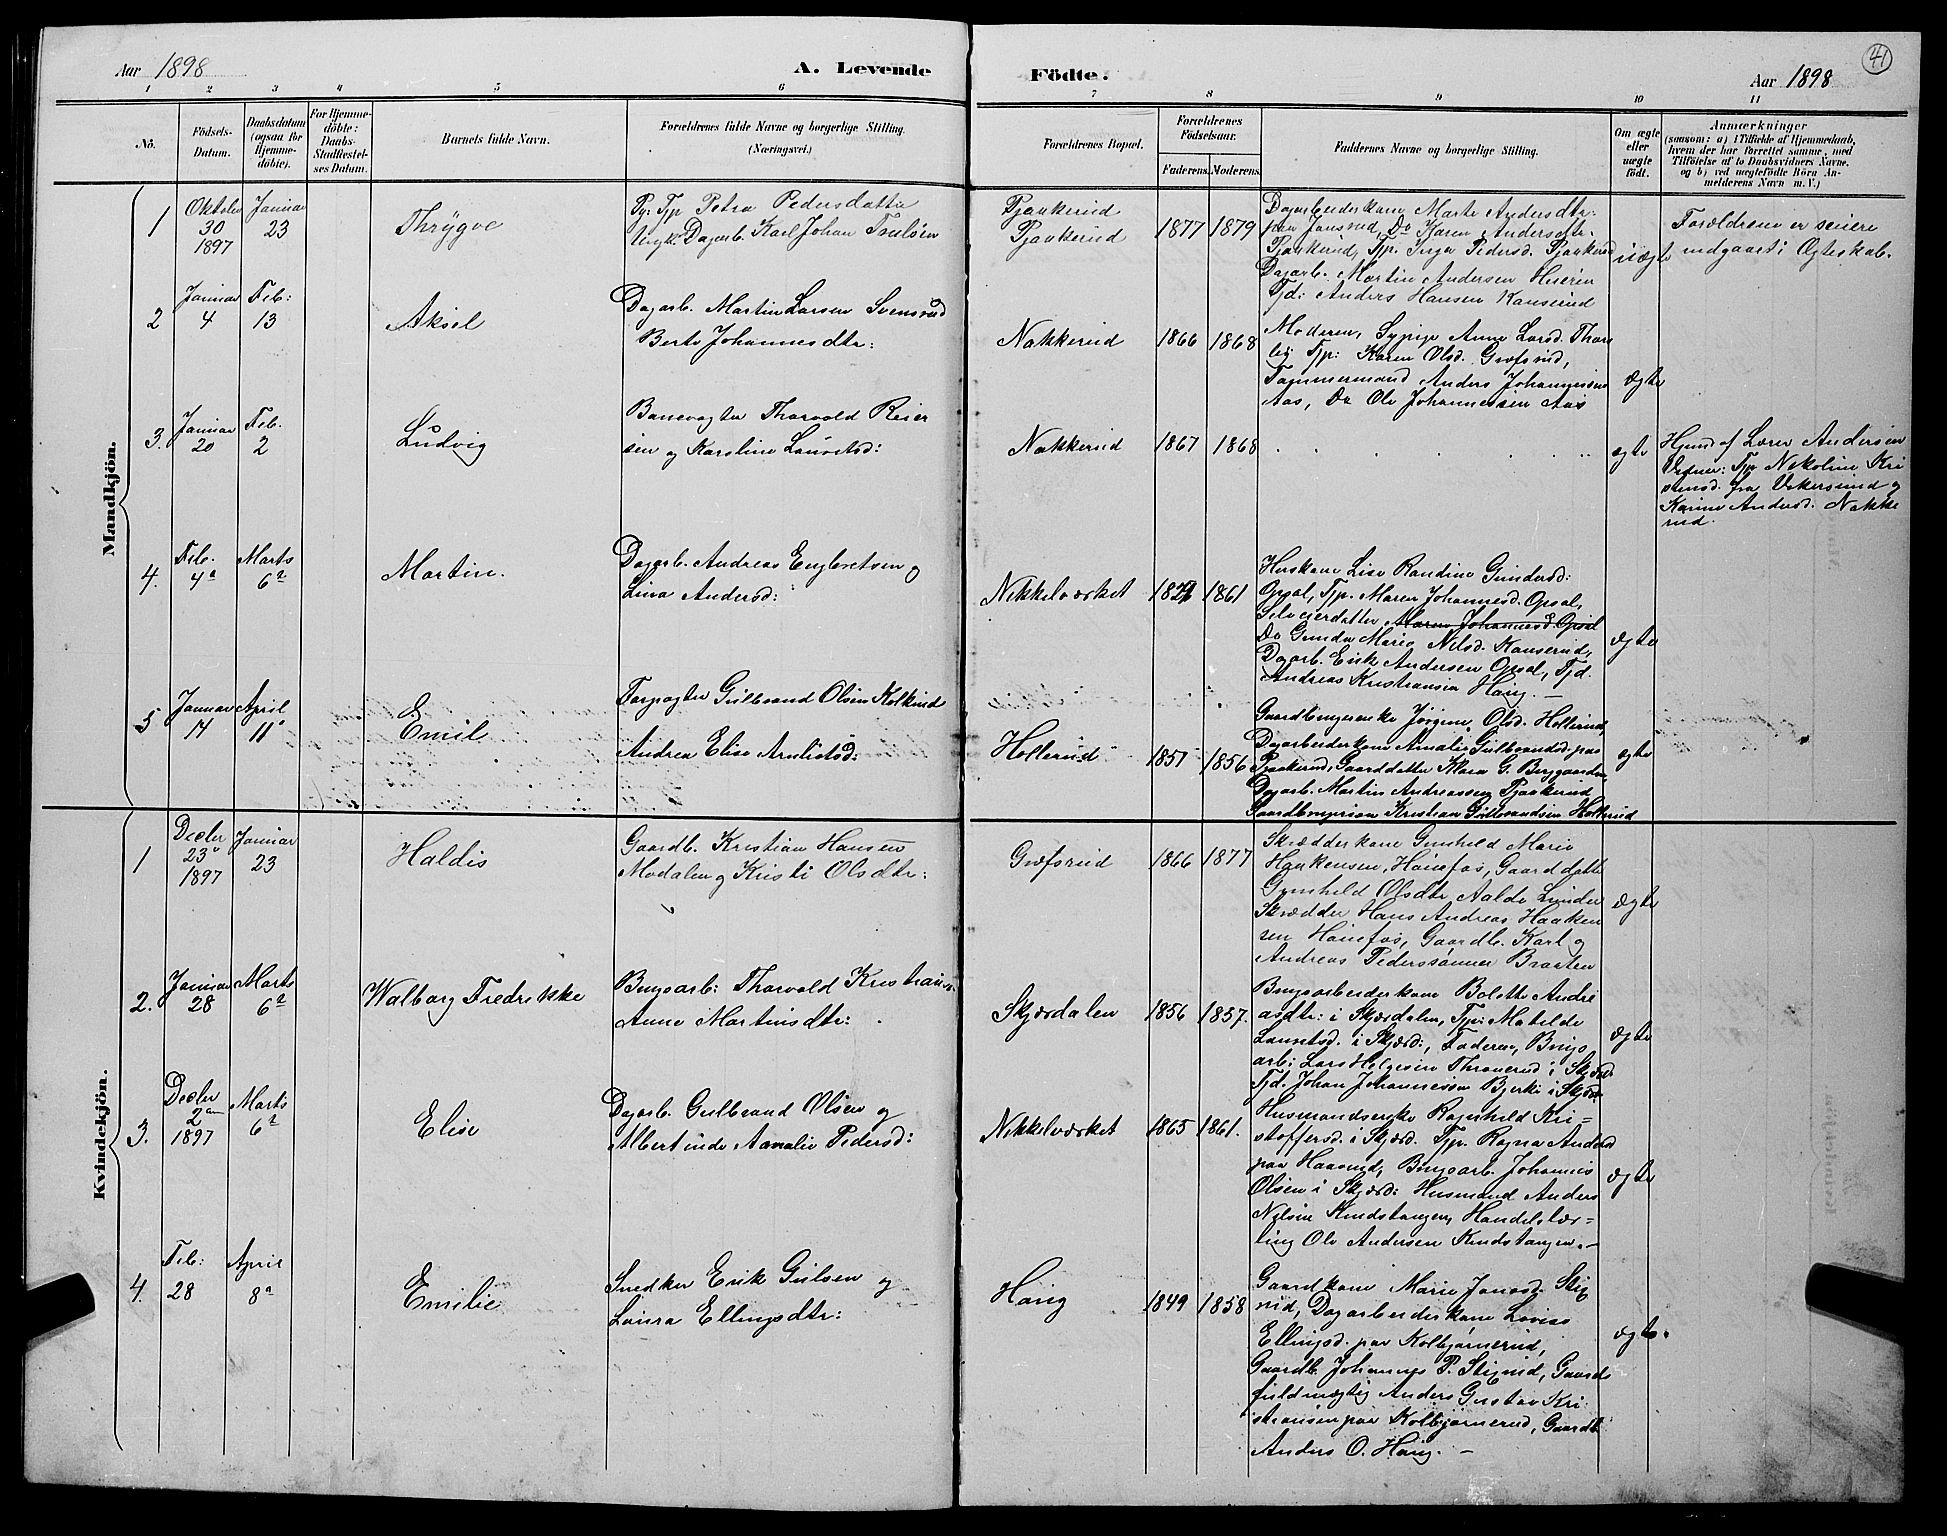 Aar 1898
A. Levende
Födte.
Aar 1898
41
1 2 3 4 5 6 7 8 9 10 11
No.
Födsels-
Datum.
Daabsdatum
(ogsaa for
Hjemme-
döbte).
For Hjemme-
döbte:
Daabs-
Stadfæstel-
ses Datum.
Barnets fulde Navn.
Forældrenes fulde Navne og borgerlige Stilling.
(Næringsvei.)
Forældrenes Bopæl.
Forældrenes
Födselsaar.
Faderens.
Moderens.
Faddernes Navne og borgerlige Stilling.
Om ægte
eller
uægte
födt.
Anmærkninger
(saasom: a) i Tilfælde af Hjemmedaab,
hvem der har forrettet samme, med
Tilföielse af to Daabsvidners Navne,
og b) ved uægtefödte Börn An-
melderens Navn m. V.)
Mandkjön.
1
Oktober
30
1897
Januar
23
Thrygve
Pg. Tjp Petra Pedersdatter
Ungk. Dagarb. Karl Johan Trulsen
Pjaakerud
Pjaakerud
1877 1879
Dagarbeiderkone Marte Andersdtr.
paa Jonsrud, Do Karen Andersdtr.
Pjaakerud, Tjp. Inga Pedersd. Pjaakerud
Dagarb. Martin Andersen
Tjd: Anders Hansen Kanserud
uægte
Forældrene er senere
indgaaet i Ægteskab.
2
Januar
4
Feb:
13
Aksel
Dagarb. Martin Larsen Svensrud
Berte Johannesdtr:
Nakkerud
1866 1868
Moderen, Sypige Anne Larsd. Thor
Tjp: Karen Olsd. Græfsrud,
Tømmermand Anders Johannesen
Aas, Do Ole Johannessen Aas
ægte
3.
Januar
20
Feb.
2
Ludvig
Banevogter Thorvald Reier
sen og Karoline Lauretsd:
Nakkerud
1867 1868
ægte
Hjemd. af Lærer Andersen
Vidner: Tjp Nikoline Kri
stensd. fra Vikersund og
Karine Andersd. Nakke
rud.
4.
Feb.
4
Marts
6
Martin.
Dagarb. Andreas Engebretsen og
Lina Andersd:
Nikkelværket
1861
Huskone Lise Randine Gundersd:
Opsal, Tjp. Maren Johannesd. Opsal,
Selveierdatter Maren Johannesd. Opsal
Do Gunda Marie Nilsd. Kanserud,
Dagarb. Erik Andersen Opsal, Tjd.
Andreas Kristiansen Houg. —
ægte
5
Januar
14
April
11
Emil
Forpagter Gulbrand Olsen Kolkind
Andrea Elise Arnhetsd:
Hollerud
1851 1856
Gaardbrugerenke Jørgine Olsd. Hollerud,
Dagarbeiderkone Amalie Gulbrandsd. paa
Pjaakerud, Gaarddatter Klara G. Berggaarden,
Dagarb. Martin Andreassen Pjaakerud
Gaardbrugersøn Kristian Gulbrandsen Hollerud
ægte
Kvindekjön.
1
Decbr
23
1897
Januar
23
Haldis
Gaardb. Kristian Hansen
Modalen og Kristi Olsdtr:
Græfsrud
1866 1877
Skrædderkone Gunhild Marie
Haakensen, Hønefos, Gaarddatter
Gunhild Olsdtr. Aalde Lunder
Skrædder Hans Andreas Haaken
sen Hønefos, Gaardb. Karl og
Andreas Pederssønner Braaten
ægte
2.
Januar
28
Marts
6
Walborg Fredrikke
Brugsarb: Thorvald Kristians.
Anne Martinsdtr:
Skjærdalen
1856 1857.
Brugsarbeiderkone Bolette Andre
asdtr: i Skjærdalen, Tjp: Matilde
Lauretsd. i Skjærd:, Faderen, Brugs
arb: Lars Helgesen Thronrud i Skjærd.
Tjd. Johan Johannessen Bjerke i Skjærd.
ægte
3.
Decbr
2
1897
Marts
6
Elise
Dagarb. Gulbrand Olsen og
Albertinde Aamalie Pedersd:
Nikkelværket
1865 1861.
Husmandsenke Ragnhild Kri=
stoffersd. i Skjærd. Tjp. Ragna Andersd
paa Haavrud, Brugsarb. Johannes
Olsen i Skjærd: Husmand Anders
Nilsen Kindstangen, Handelslær=
ling Ole Andersen Kindstangen. —
ægte
4.
Feb:
28
April
8
Emilie
Snedker Erik Gulsen og
Laura Ellingsdtr:
Houg
1849 1858
Gaardkone Marie Jonsd. Stig
rud, Dagarbeiderkone Lovise
Ellingsd. paa Kolbjørnrud,
Gaardb. Johannes P. Stigrud, Gaards
fuldmægtig Anders Gustav Kri
stiansen paa Kolbjørnerud, Gaardb.
Anders O. Houg. —
ægte.